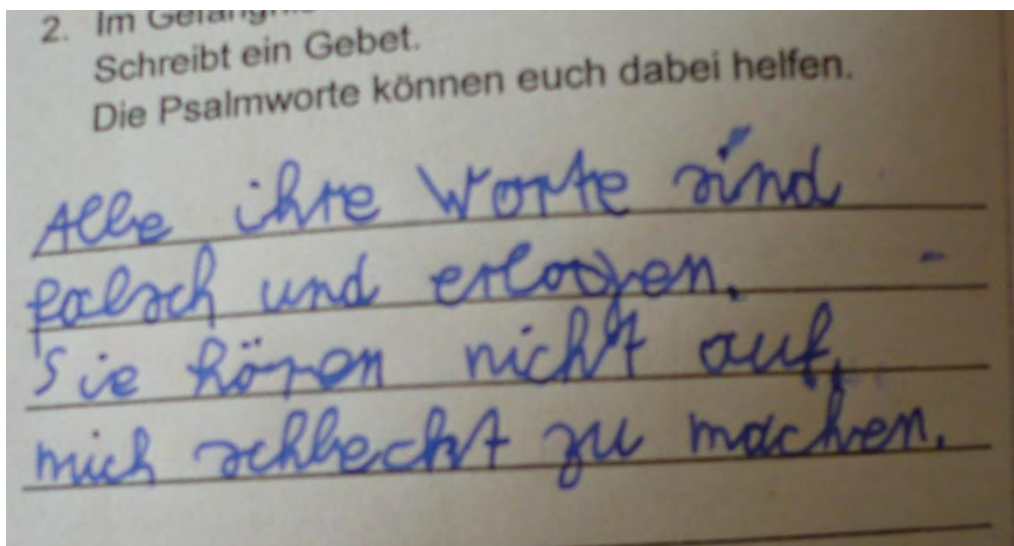 2. Im Gefängnis
Schreibt ein Gebet.
Die Psalmworte können euch dabei helfen.
Alle ihre Worte sind
falsch und erlogen.
Sie hören nicht auf,
mich schlecht zu machen.